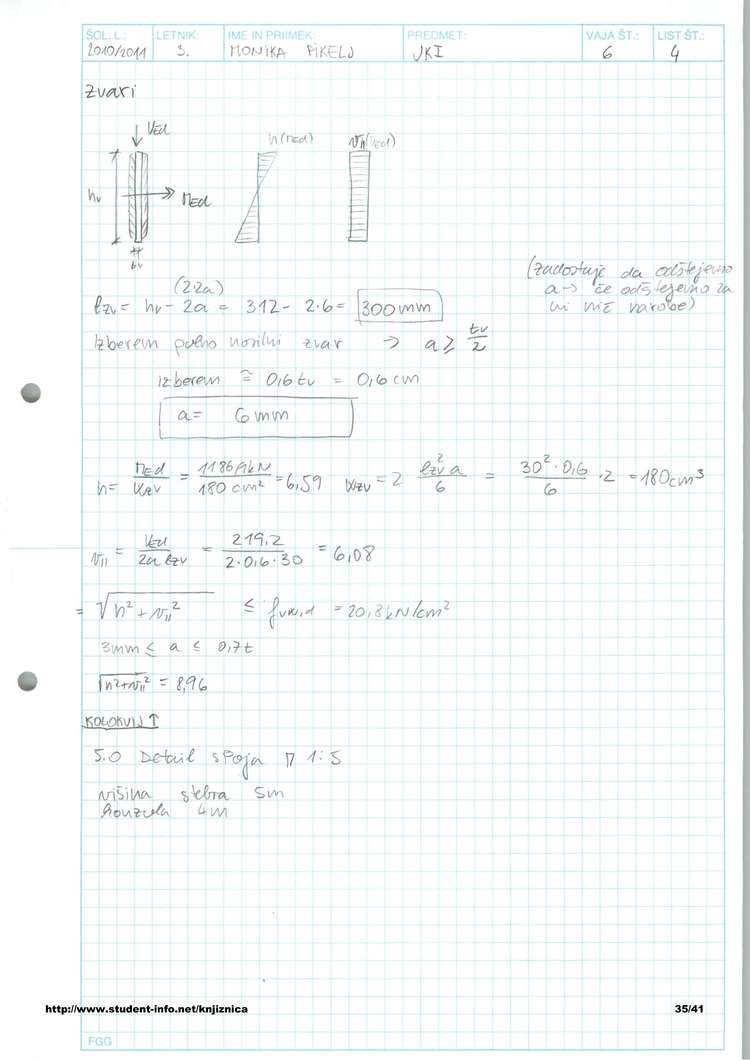 ŠOL. L.: LETNIK: IME IN PRIIMEK: PREDMET: VAJA ŠT.: LIST ŠT.:
2010/2011 3. MONIKA PIKELJ JKI 6 4
Zvari
VEd
n(MEd) v||(VEd)
hv MEd
bv
(zadostuje da odštejemo
(2·2a) a → če odštejemo 2a
lzv = hv - 2a = 312 - 2·6 = 300mm ni nič narobe)
Izberem polno nosilni zvar → a ≥ tv/2
izberem ≅ 0,6 tv = 0,6 cm
a = 6 mm
n = MEd/Wzv = 1186/180 cm² = 6,59 Wzv = 2 lzv² a/6 = 30²·0,6/6 ·2 = 180cm³
v|| = VEd/2a lzv = 219,2/2·0,6·30 = 6,08
= √n² + v||² ≤ fvw,d = 20,8kN/cm²
3mm ≤ a ≤ 0,7t
√n²+v||² = 8,96
KOLOKVIJ ↑
5.0 Detail spoja M 1:5
višina stebra 5m
konzola 4m
http://www.student-info.net/knjiznica 35/41
FGG